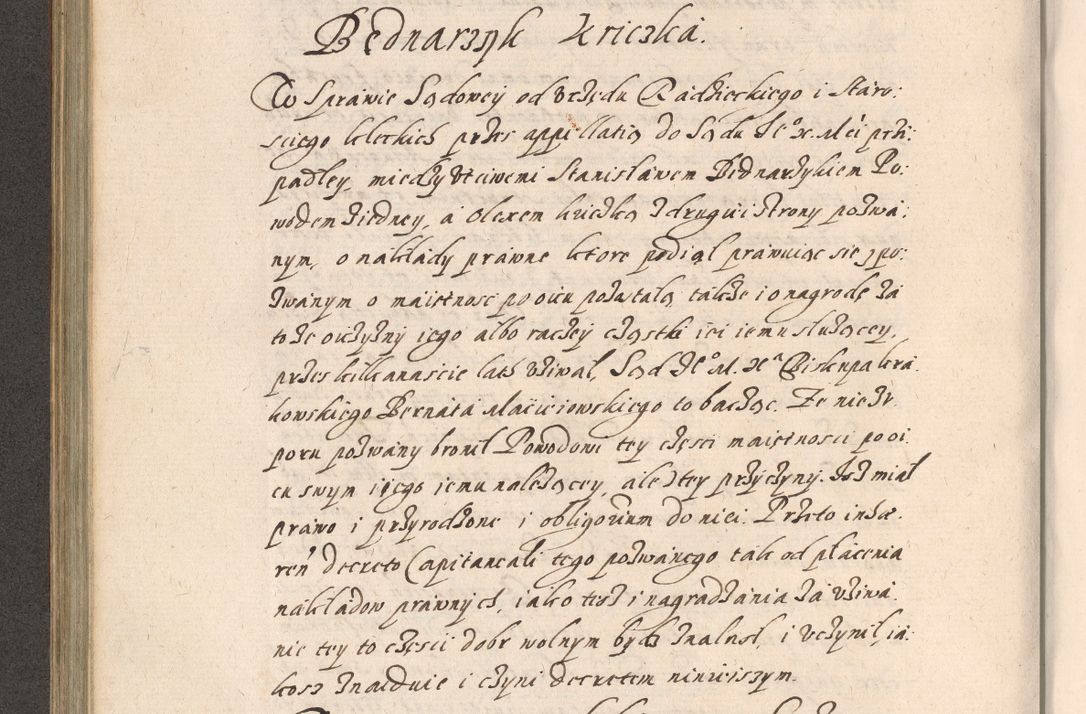 Bednarzyk Kriczka.
W Sprawie Sądowey od Vrzędu Radzieckiego i Staro:
sciego kieleckich przes appellatią do Sądu Je° X. Mći prži:
padłey, miedzy Vtciwemi Stanisławem Bednarzykiem Po:
wodem ziedney, a Olexem kriczką zdrugiei strony pozwa:
nym, o nakłady prawne ktore podiął prawuiąc sie z po:
zwanym o maiętnosc po oicu pozostałą także i o nagrodę za
to że oiczyzny iego albo raczey cząstki iei iemu służącey,
przes kilkanascie lath vżiwał, Sąd Je° M. Xª Biskupa kra
kowskiego Bernata Macieiowskiego to bacząc. Że nie z v
poru pozwany bronił Powodowi tey części maiętnosci po oi
cu swym i iego iemu należącey, ale z tey przyczyny. Isz miał
prawo i przyrodzone i obligorium do niei. Przeto inhæ
ren° decreto Capitaneali tego pozwanego tak od płacenia
nakładow prawnych, iako tesz i nagradzania za vżiwa
nie tey to częsci dobr wolnym bydz znalasł, i vczynił, ia:
kosz znaiduie i czyni decretem ninieiszym.